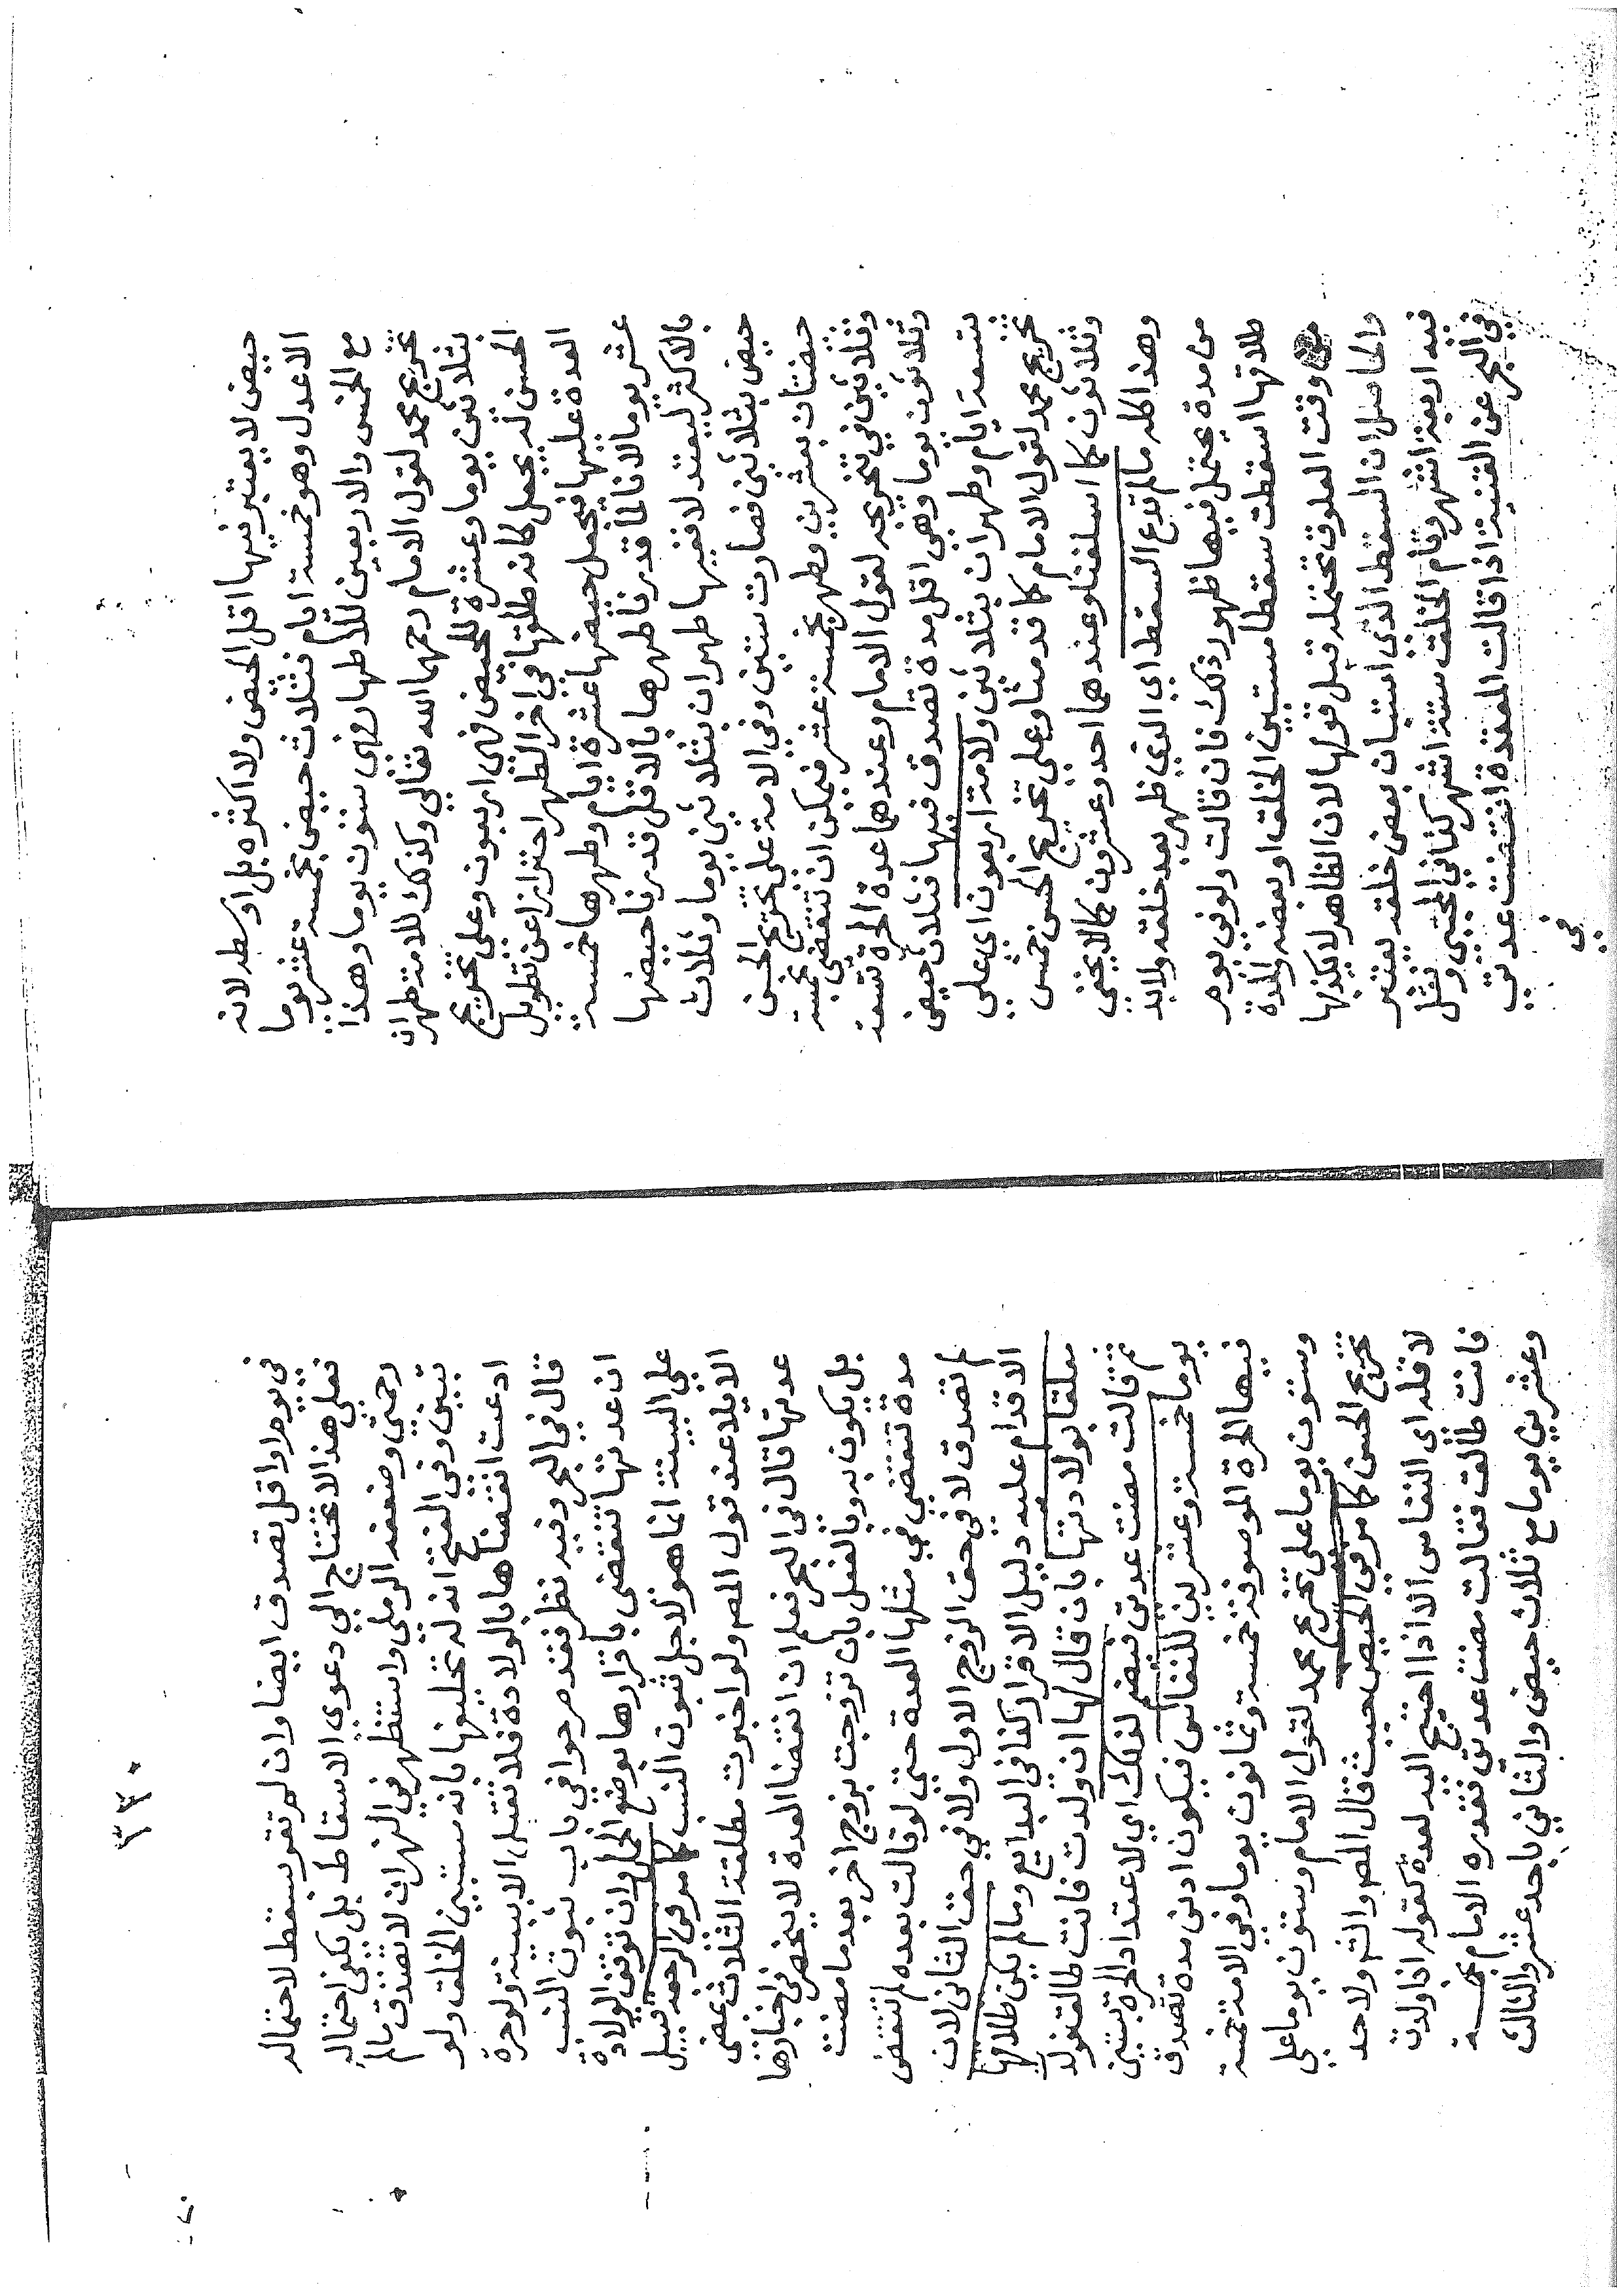 حيض لا يعتبر فيها اقل الحيض ولا اكثره بل اوسطه لانه
الاعدل وهو خمسة ايام فثلاث حيض بخمسة عشر يوما
مع الخمس والاربعين للاطهار فهى ستون يوما وهذا
تخريج محمد لقول الامام رحمهما الله تعالي وكذلك للامة طهران
بثلاثين يوما وعشرة للحيض فهى اربعون وعلى تخريج
الحسن له يجعل كانه طلقها في اخر الطهر احترازا عن تطويل
العدة عليها فيجعل حيضها عشرة ايام وطهرها خمسة
عشر يوما لانا لما قدرنا طهرها بالاقل قدرنا حيضها
بالاكثر ليعتدلا ففيها طهران بثلاثين يوما وثلاث
حيض بثلاثين فصارت ستين وفي الامة على تخريج الحسن
حيضتان بعشرين وطهر بخمسة عشر فيمكن ان تنقضي بخمسة
وثلاثين في تخريجه لقول الامام وعندهما عدة الحرة تسعة
وثلاثون يوما وهي اقل مدة تصدق فيها فثلاث حيض
بتسعة ايام وطهران بثلاثين ولامة اربعون اي على
تخريج محمد لقول الامام كما قدمنا وعلي تخريج الحسن خمس
وثلاثون كما اسلفنا وعندهما احد وعشرون كما لا يخفي
وهذا كله ما لم تدع السقط اي الذي ظهر بعد خلقه ولابد
من مدة يحتمل فيها ظهور ذلك فان قالت ولو في يوم
طلاقها اسقطت سقطا مستبين الخلق او بعضه والمدة
من وقت العلوق تحتمله قبل قولها لان الظاهر لا يكذبها
والحاصل ان السقط الذي استبان بعض خلقه يعتبر
فيه اربعة اشهر وتام الخلق ستة اشهر كذا في المجتبى ونقل
في البحر عن القنية اذا قالت المعتدة انقضت عدتي
في
٣٣٠
في يوم او اقل تصدق ايضا وان لم تقر بسقط لاحتماله
فعلى هذا لا تحتاج الي دعوى الاسقاط بل يكفي احتماله
رحمتي وضعفه الرملي واستظهر في النهر ان لا تصدق ما لم
تبين وفي الفتح انه له تحليفها بانه مستبين الخلق ولو
ادعت انقضاها بالولادة فلا تقبل الا ببينة ولو حرة
قال في البحر وفيه نظر فقد صرحوا في باب ثبوت النسب
ان عدتها تنقضي باقرارها بوضع الحمل وان توقف الولادة
على البينة انما هو لاجل ثبوت النسب كما مر في الرجعة قبيل
الايلا عند قول المص ولو اخبرت مطلقة الثلاث بمضي
عدتها قال في البحر فعلم ان انقضا العدة لا ينحصر في اخبارها
بل يكون به وبالفعل بان تزوجت بزوج اخر بعدما مضت
مدة تنقضي في مثلها العدة حتى لو قالت بعده لم تنقض
لم تصدق لا في حق الزوج الاول ولا في حق الثاني لان
الاقدام عليه دليل الاقرار كذا في البدايع وما لم يكن طلاقها
معلقا بولادتها بان قال لها ان ولدت فانت طالق فولدت
ثم قالت مضت عدتي فيضم لذلك اي لاعتداد الحرة بستين
يوما خمسة وعشرين للنفاس فيكون ادنى مدة تصدق
فيها الحرة الموصوفة خمسة وثمانون يوما وفي الامة خمسة
وستون يوما على تخريج محمد لقول الامام وستون يوما على
تخريج الحسن كما مر في الحيض حيث قال المص والشم ولا حد
لاقله اى النفاس الا اذا احتيج اليه لعدة كقوله اذا ولدت
فانت طالق فقالت مضت عدتي فقدره الامام بخمسة
وعشرين يوما مع ثلاث حيض والثاني باحد عشر والثالث